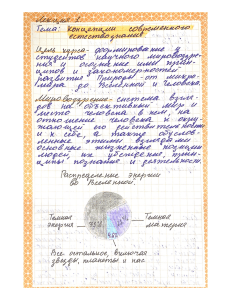 Лекция 1
Тема: концепции современного
естествознания
Цель курса - формирование у
студентов научного мировоззре-
ния и осознание ими прин-
ципов и закономерностей
развития Природы от микро-
мира до Вселенной и Человека.
Мировоззрение - система взгля-
дов на объективный мир и
место человека в нём, на
отношение человека к окру-
жающей его действительности
и к себе, а также обуслов-
ленные этими взглядами
основные жизненные позиции
людей, их убеждения, прин-
ципы познания и деятельности.
Распределение энергии
во Вселенной.
Тёмная
энергия
Тёмная
материя
Всё остальное, включая
звёзды, планеты и нас